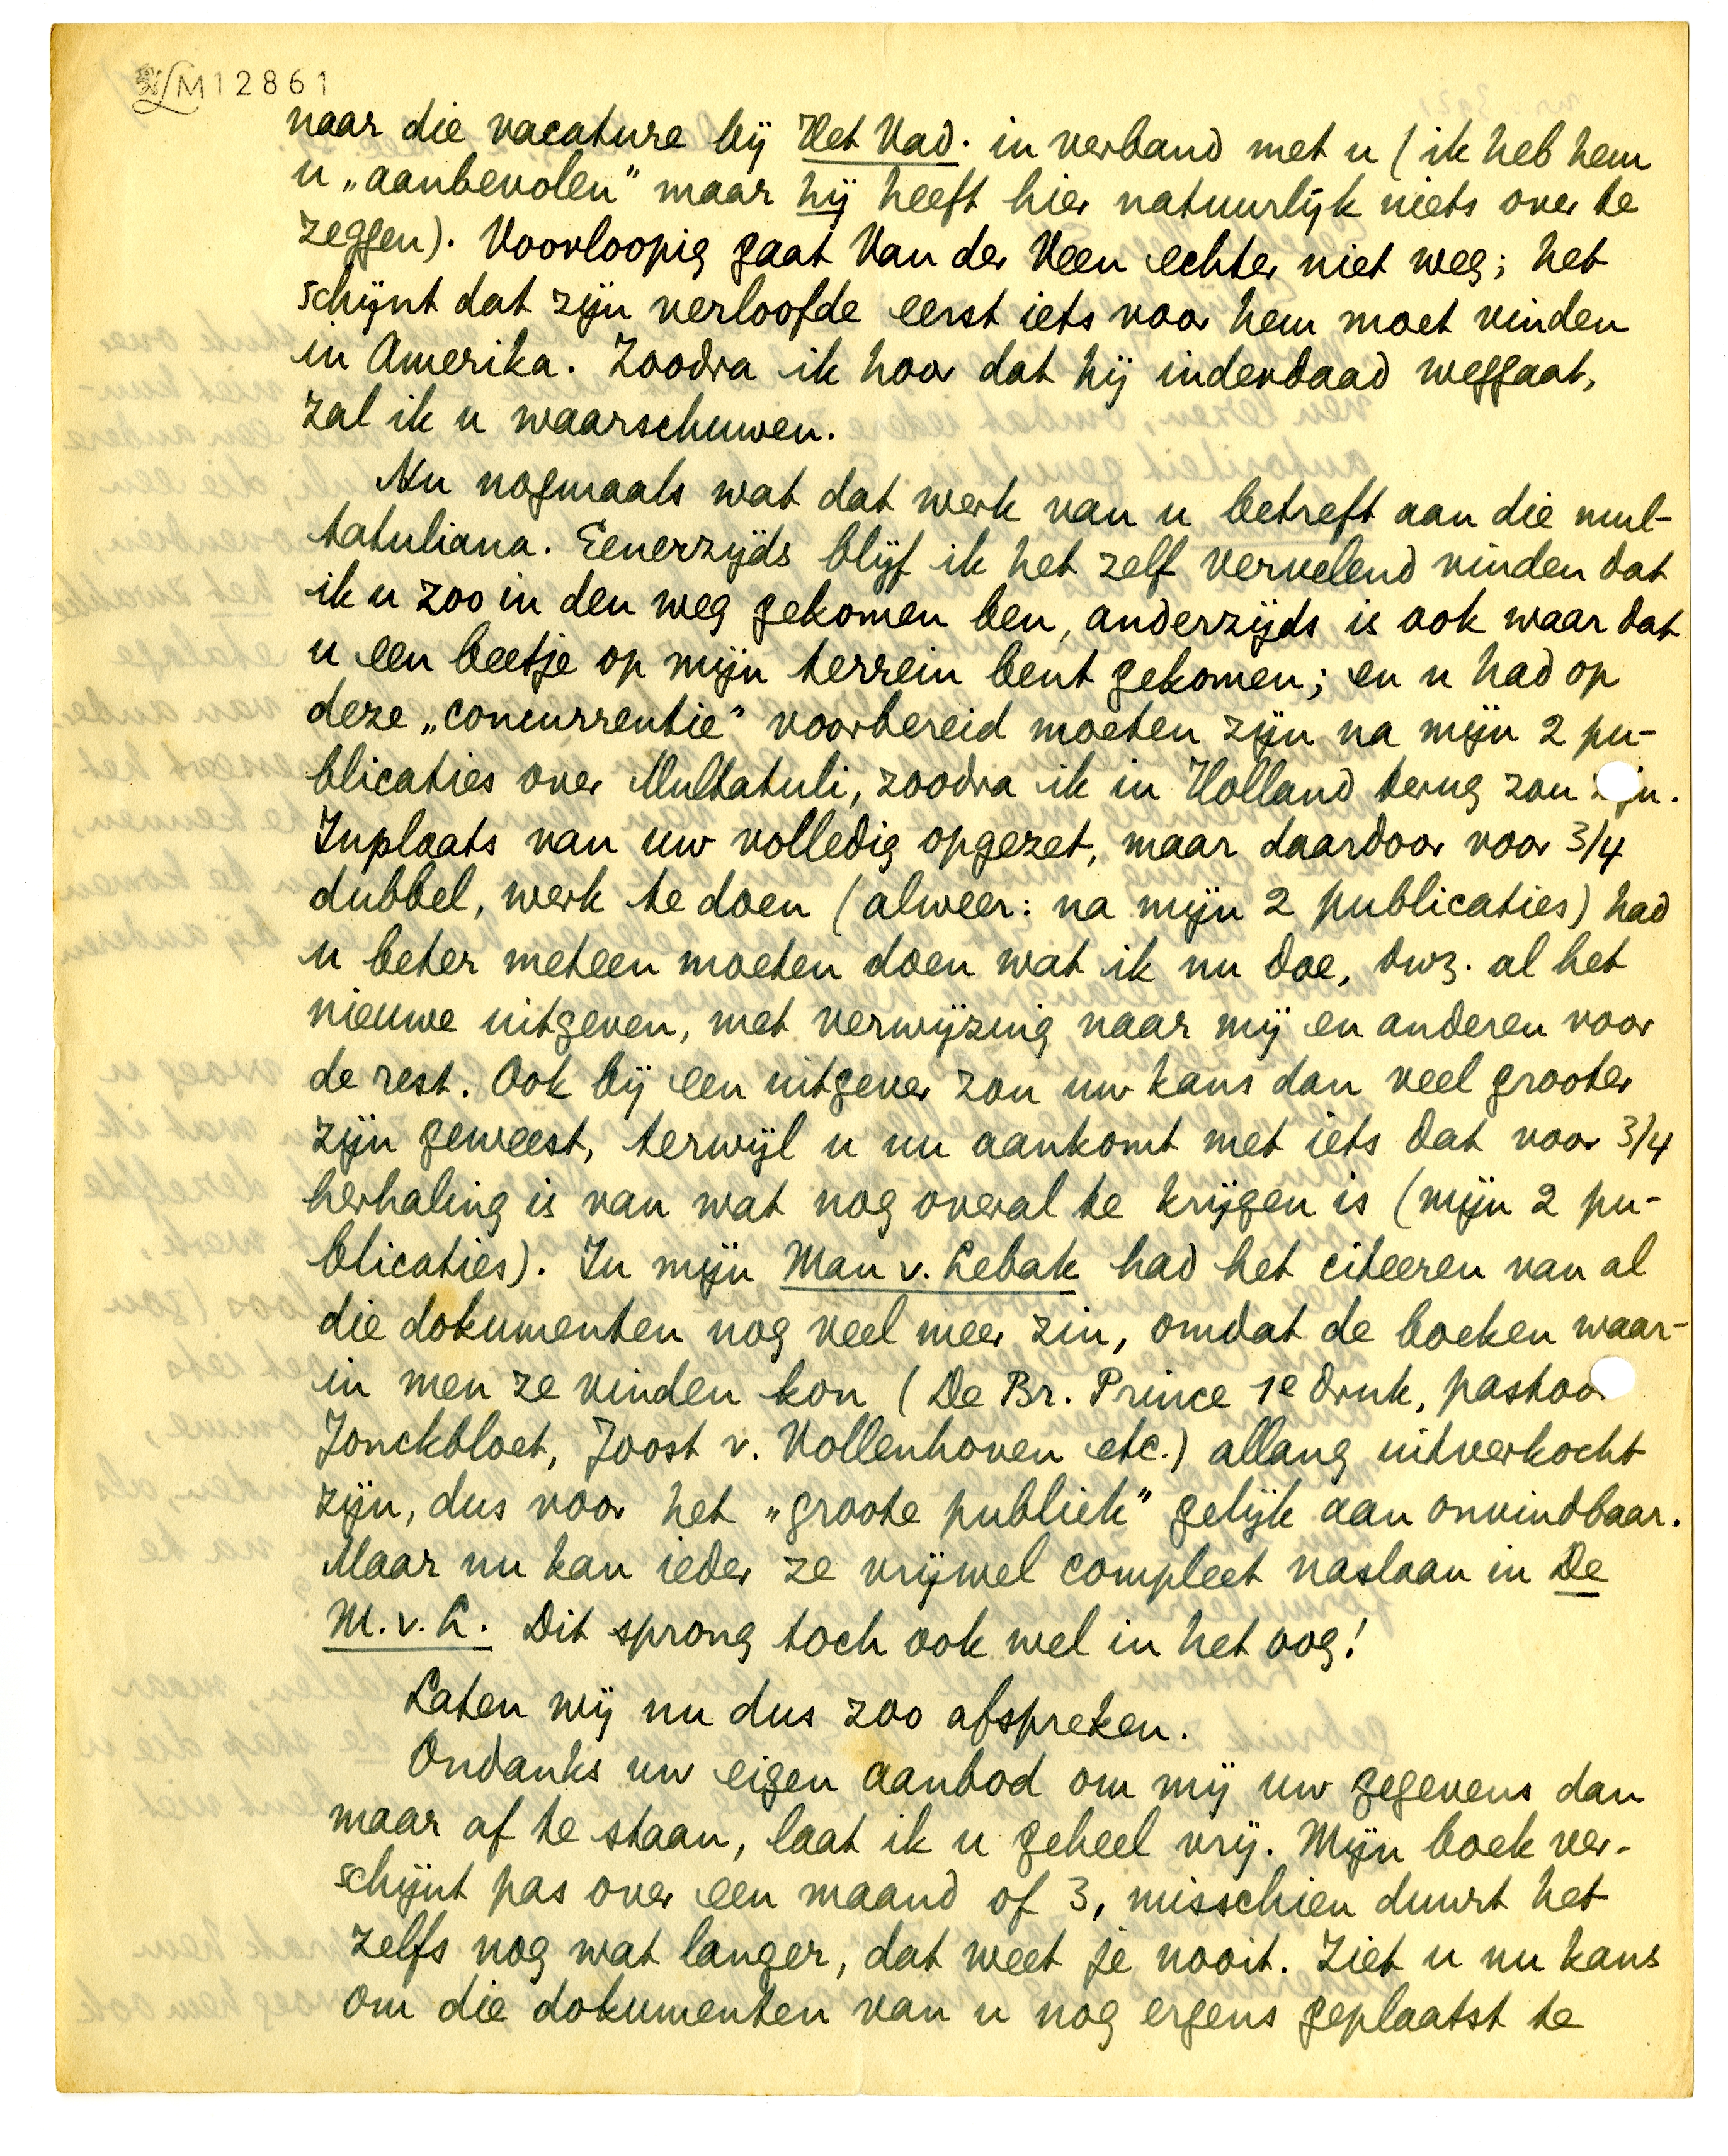 LM12861
naar die vacature bij Het Vad. in verband met u (ik heb hem
u „aanbevolen” maar hij heeft hier natuurlijk niets over te
zeggen). Voorloopig gaat Van der Veen echter niet weg; het
schijnt dat zijn verloofde eerst iets voor hem moet vinden
in Amerika. Zoodra ik hoor dat hij inderdaad weggaat,
zal ik u waarschuwen.
Nu nogmaals wat dat werk van u betreft aan die mul-
tatuliana. Eenerzijds blijf ik het zelf vervelend vinden dat
ik u zoo in den weg gekomen ben, anderzijds is ook waar dat
u een beetje op mijn terrein bent gekomen; en u had op
deze „concurrentie” voorbereid moeten zijn na mijn 2 pu-
blicaties over Multatuli, zoodra ik in Holland terug zou zijn.
Inplaats van uw volledig opgezet, maar daardoor voor 3/4
dubbel, werk te doen (alweer: na mijn 2 publicaties) had
u beter meteen moeten doen wat ik nu doe, dwz. al het
nieuwe uitgeven, met verwijzing naar mij en anderen voor
de rest. Ook bij een uitgever zou uw kans dan veel grooter
zijn geweest, terwijl u nu aankomt met iets dat voor 3/4
herhaling is van wat nog overal te krijgen is (mijn 2 pu-
blicaties). In mijn Man v. Lebak had het citeeren van al
die dokumenten nog veel meer zin, omdat de boeken waar-
in men ze vinden kon (De Br. Prince 1e druk, pastoor
Jonckbloet, Joost v. Vollenhoven etc.) allang uitverkocht
zijn, dus voor het „groote publiek” gelijk aan onvindbaar.
Maar nu kan ieder ze vrijwel compleet naslaan in De
M. v. L. Dit sprong toch ook wel in het oog!
Laten wij nu dus zoo afspreken.
Ondanks uw eigen aanbod om mij uw gegevens dan
maar af te staan, laat ik u geheel vrij. Mijn boek ver-
schijnt pas over een maand of 3, misschien duurt het
zelfs nog wat langer, dat weet je nooit. Ziet u nu kans
om die dokumenten van u nog ergens geplaatst te